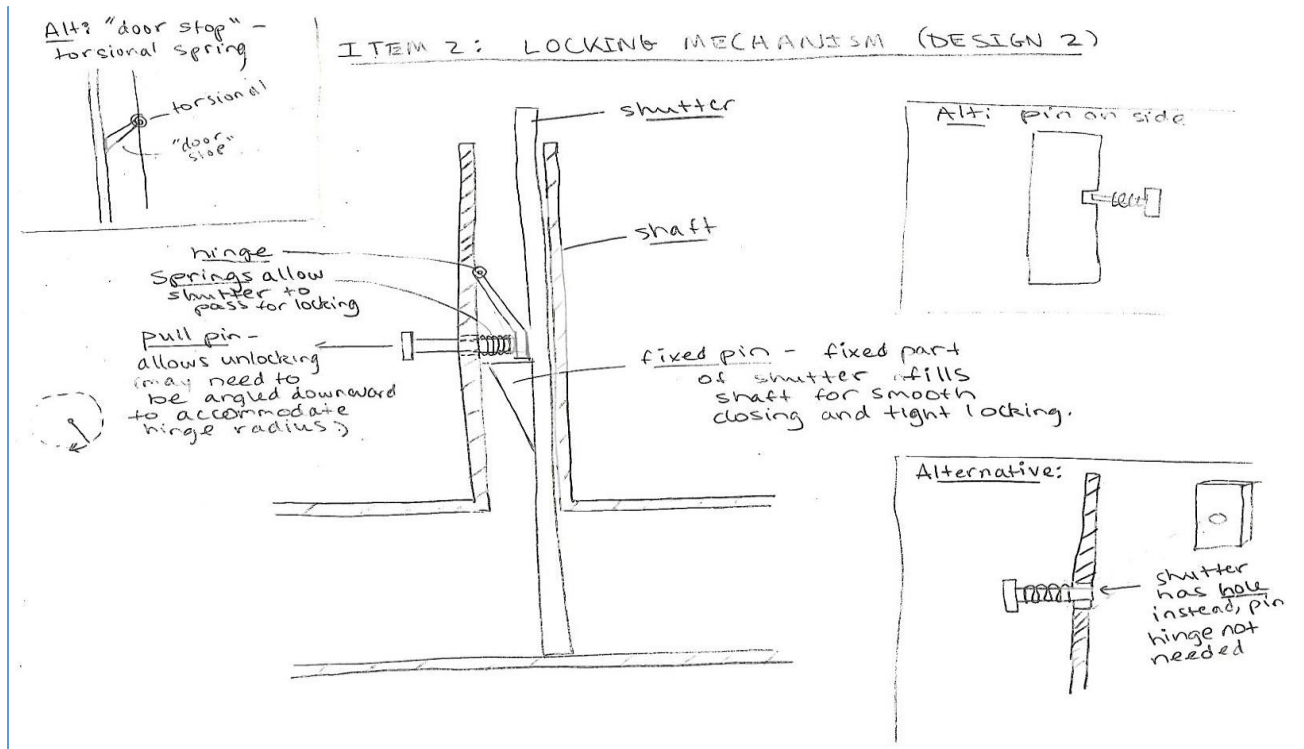 ITEM 2: LOCKING MECHANISM (DESIGN 2)
Alt: "door stop" -
torsional spring
torsional
"door
stop"
shutter
shaft
hinge
Springs allow
shutter to
pass for locking
pull pin -
allows unlocking
(may need to
be angled downward
to accommodate
hinge radius:)
fixed pin - fixed part
of shutter fills
shaft for smooth
closing and tight locking.
Alt: pin on side
Alternative:
shutter
has hole
instead, pin
hinge not
needed